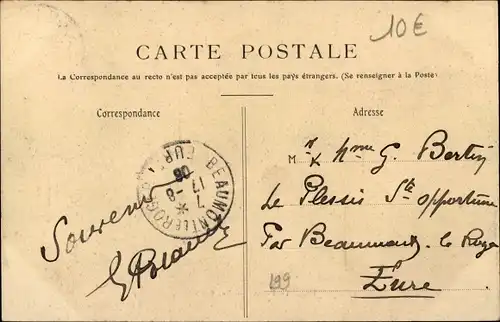 10€
CARTE POSTALE
La Correspondance au recto n'est pas acceptée par tous les pays étrangers. (Se renseigner à la Poste)
Correspondance
Adresse
BEAUMONT-LE-ROGER
EURE
7
17 -8
08
Souvenir
M r & Mme G. Bertin
Le Plessis Ste Opportune
Par Beaumont le Roger
Eure
199